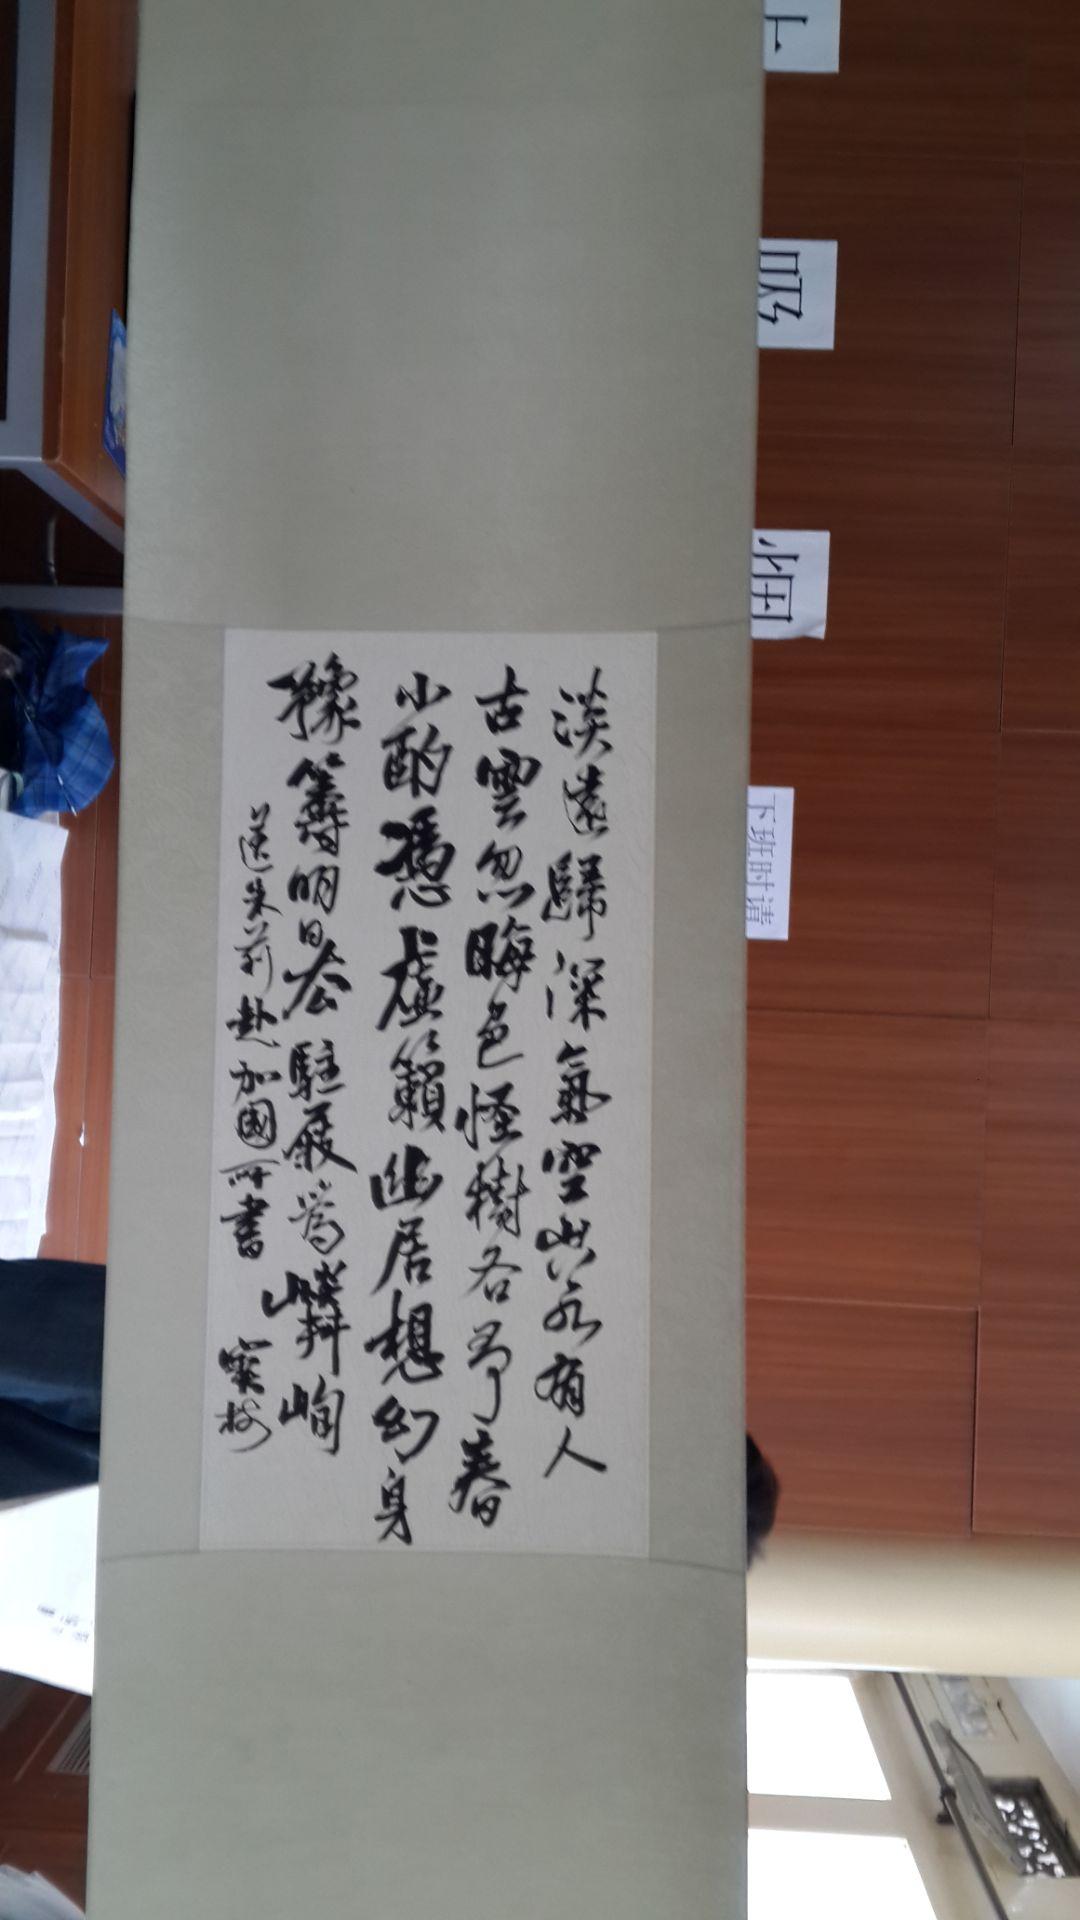 淡遠歸深氣空山永有人
古雲忽晦色怪樹各爭春
小酌憑虛籟幽居想幻身
籌明日去駐展爲嶙峋
送朱莉赴加國所書
上
吸
烟
下班时请